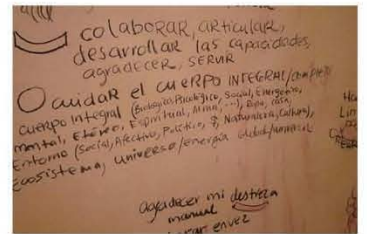 colaborar, articular,
desarrollar las capacidades,
agradecer, servir
cuidar el cuerpo INTEGRAL/completo
cuerpo integral (Biológico, Psicológico, Social, Energético,
mental, Etérico, Espiritual, Alma, ...), Ropa, casa,
Entorno (Social, Afectivo, Político, Naturaleza, Cultura),
Ecosistema, universo/energía
agradecer mi destreza
manual
en vez